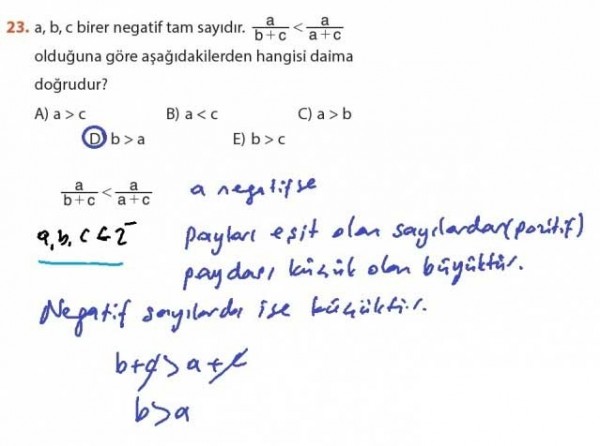 23. a, b, c birer negatif tam sayıdır. a/(b+c) < a/(a+c)
olduğuna göre aşağıdakilerden hangisi daima
doğrudur?
A) a > c B) a < c C) a > b
D) b > a E) b > c
a/(b+c) < a/(a+c) a negatifse
a, b, c ∈ Z⁻ payları eşit olan sayılardan (pozitif)
paydası küçük olan büyüktür.
Negatif sayılarda ise küçüktür.
b+c > a+c
b>a